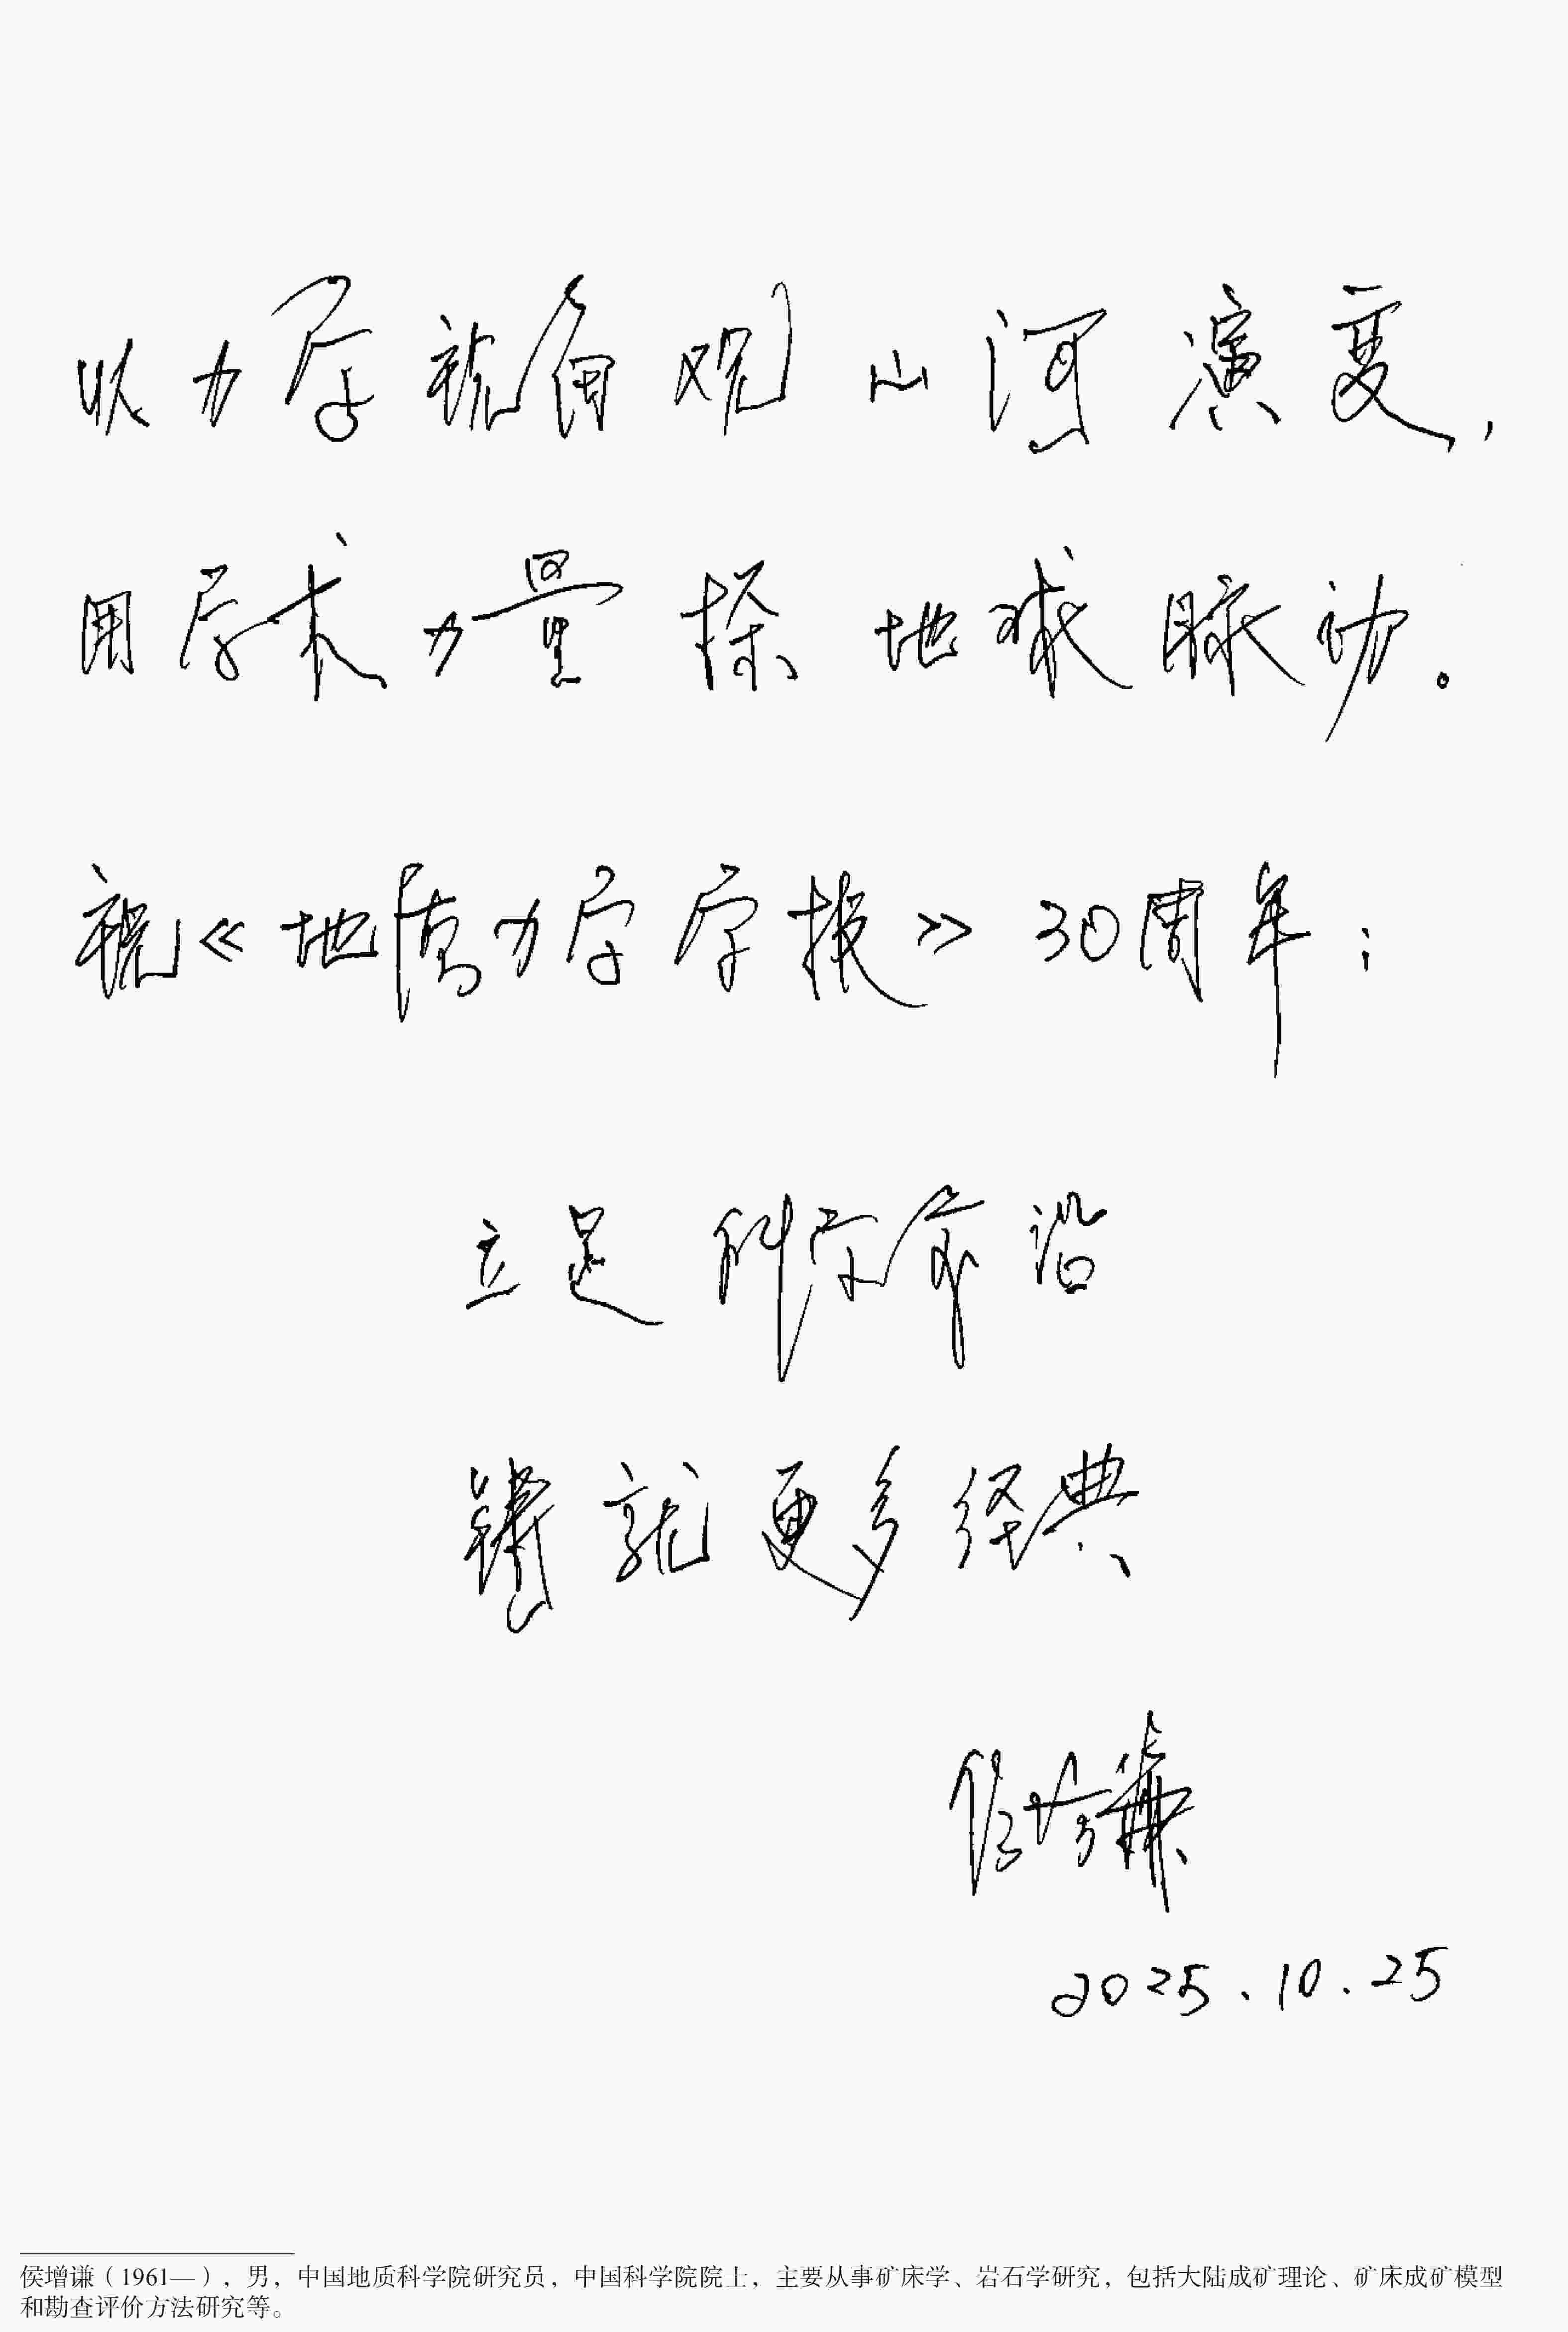 以力学视角观山河演变，
用学术力量探地球脉动。
祝《地质力学学报》30周年：
立足科学前沿
铸就更多经典
侯增谦
2025.10.25
侯增谦（1961—），男，中国地质科学院研究员，中国科学院院士，主要从事矿床学、岩石学研究，包括大陆成矿理论、矿床成矿模型
和勘查评价方法研究等。